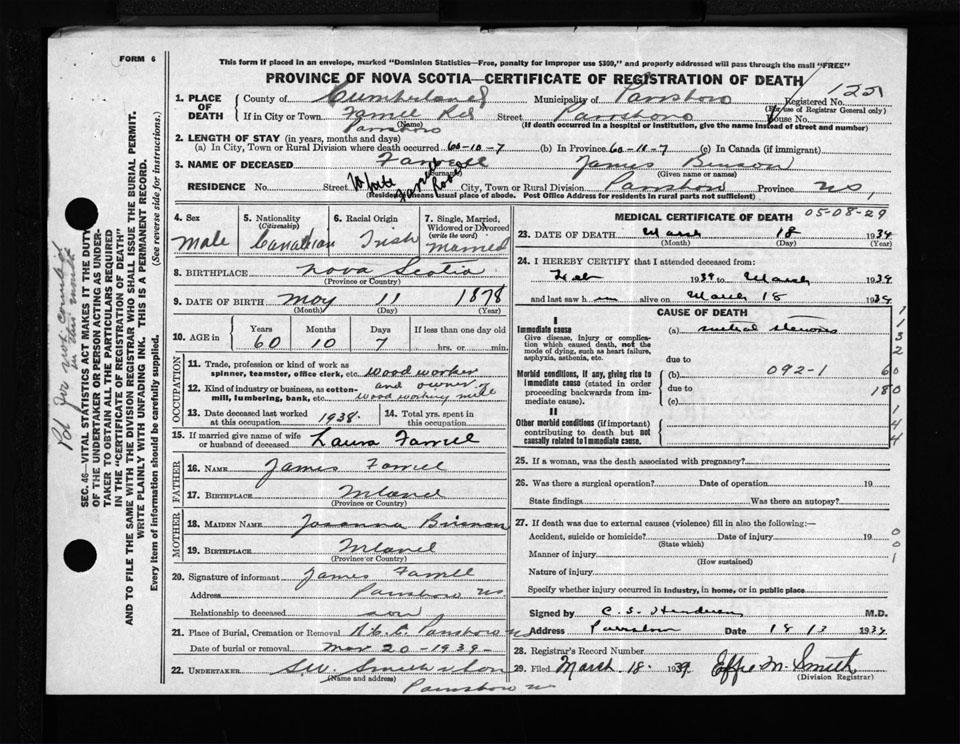 FORM 6
This form if placed in an envelope, marked "Dominion Statistics—Free, penalty for improper use $300," and properly addressed will pass through the mail "FREE"
PROVINCE OF NOVA SCOTIA—CERTIFICATE OF REGISTRATION OF DEATH
1. PLACE OF DEATH
County of Cumberland Municipality of Parrsboro Registered No. 125
(For use of Registrar General only)
If in City or Town Parrsboro Street Parrsboro House No.
(Name) (If death occurred in a hospital or institution, give the name instead of street and number)
2. LENGTH OF STAY (in years, months and days)
(a) In City, Town or Rural Division where death occurred 60-10-7 (b) In Province 60-10-7 (c) In Canada (if immigrant)
3. NAME OF DECEASED Farrell James
(Surname) (Given name or names)
RESIDENCE No. Street White Road City, Town or Rural Division Parrsboro Province NS
(Residence means usual place of abode. Post Office Address for residents in rural parts not sufficient)
4. Sex
Male
5. Nationality
(Citizenship)
Canadian
6. Racial Origin
Irish
7. Single, Married, Widowed or Divorced
(write the word)
Married
8. BIRTHPLACE Nova Scotia
(Province or Country)
9. DATE OF BIRTH May 11 1878
(Month) (Day) (Year)
10. AGE in
Years Months Days If less than one day old
60 10 7 hrs. or min.
OCCUPATION
11. Trade, profession or kind of work as spinner, teamster, office clerk, etc. Wood worker
and owner
12. Kind of industry or business, as cotton-mill, lumbering, bank, etc. Wood working mill
13. Date deceased last worked at this occupation 1938
14. Total yrs. spent in this occupation
15. If married give name of wife or husband of deceased Laura Farrell
FATHER
16. NAME James Farrell
17. BIRTHPLACE Ireland
(Province or Country)
MOTHER
18. MAIDEN NAME
19. BIRTHPLACE Ireland
(Province or Country)
20. Signature of informant James Farrell
Address Parrsboro NS
Relationship to deceased son
21. Place of Burial, Cremation or Removal R.C.C. Parrsboro NS
Date of burial or removal Mar 20-1939-
22. UNDERTAKER S.W. Smith & Son
(Name and address)
Parrsboro NS
MEDICAL CERTIFICATE OF DEATH 05-08-29
23. DATE OF DEATH March 18 1939
(Month) (Day) (Year)
24. I HEREBY CERTIFY that I attended deceased from:
Feb 1939 to March 1939
and last saw him alive on March 18 1939
CAUSE OF DEATH
I
Immediate cause
Give disease, injury or complication which caused death, not the mode of dying, such as heart failure, asphyxia, asthenia, etc.
(a) mitral stenosis
due to
Morbid conditions, if any, giving rise to immediate cause (stated in order proceeding backwards from immediate cause).
(b) 092-1
due to
(c)
II
Other morbid conditions (if important) contributing to death but not causally related to immediate cause.
1
1
3
2
60
180
1
4
4
25. If a woman, was the death associated with pregnancy?
26. Was there a surgical operation? Date of operation 19
State findings Was there an autopsy?
27. If death was due to external causes (violence) fill in also the following:—
Accident, suicide or homicide? Date of injury 19
(State which)
Manner of injury
(How sustained)
Nature of injury
Specify whether injury occurred in industry, in home, or in public place
0
0
1
Signed by C. S. Henderson M.D.
Address Parrsboro Date 18 / 3 1939
28. Registrar's Record Number
29. Filed March 18- 1939 Effie M. Smith
(Division Registrar)
SEC. 46—VITAL STATISTICS ACT MAKES IT THE DUTY OF THE UNDERTAKER OR PERSON ACTING AS UNDERTAKER TO OBTAIN ALL THE PARTICULARS REQUIRED IN THE "CERTIFICATE OF REGISTRATION OF DEATH" AND TO FILE THE SAME WITH THE DIVISION REGISTRAR WHO SHALL ISSUE THE BURIAL PERMIT.
WRITE PLAINLY WITH UNFADING INK. THIS IS A PERMANENT RECORD.
Every item of information should be carefully supplied. (See reverse side for instructions.)